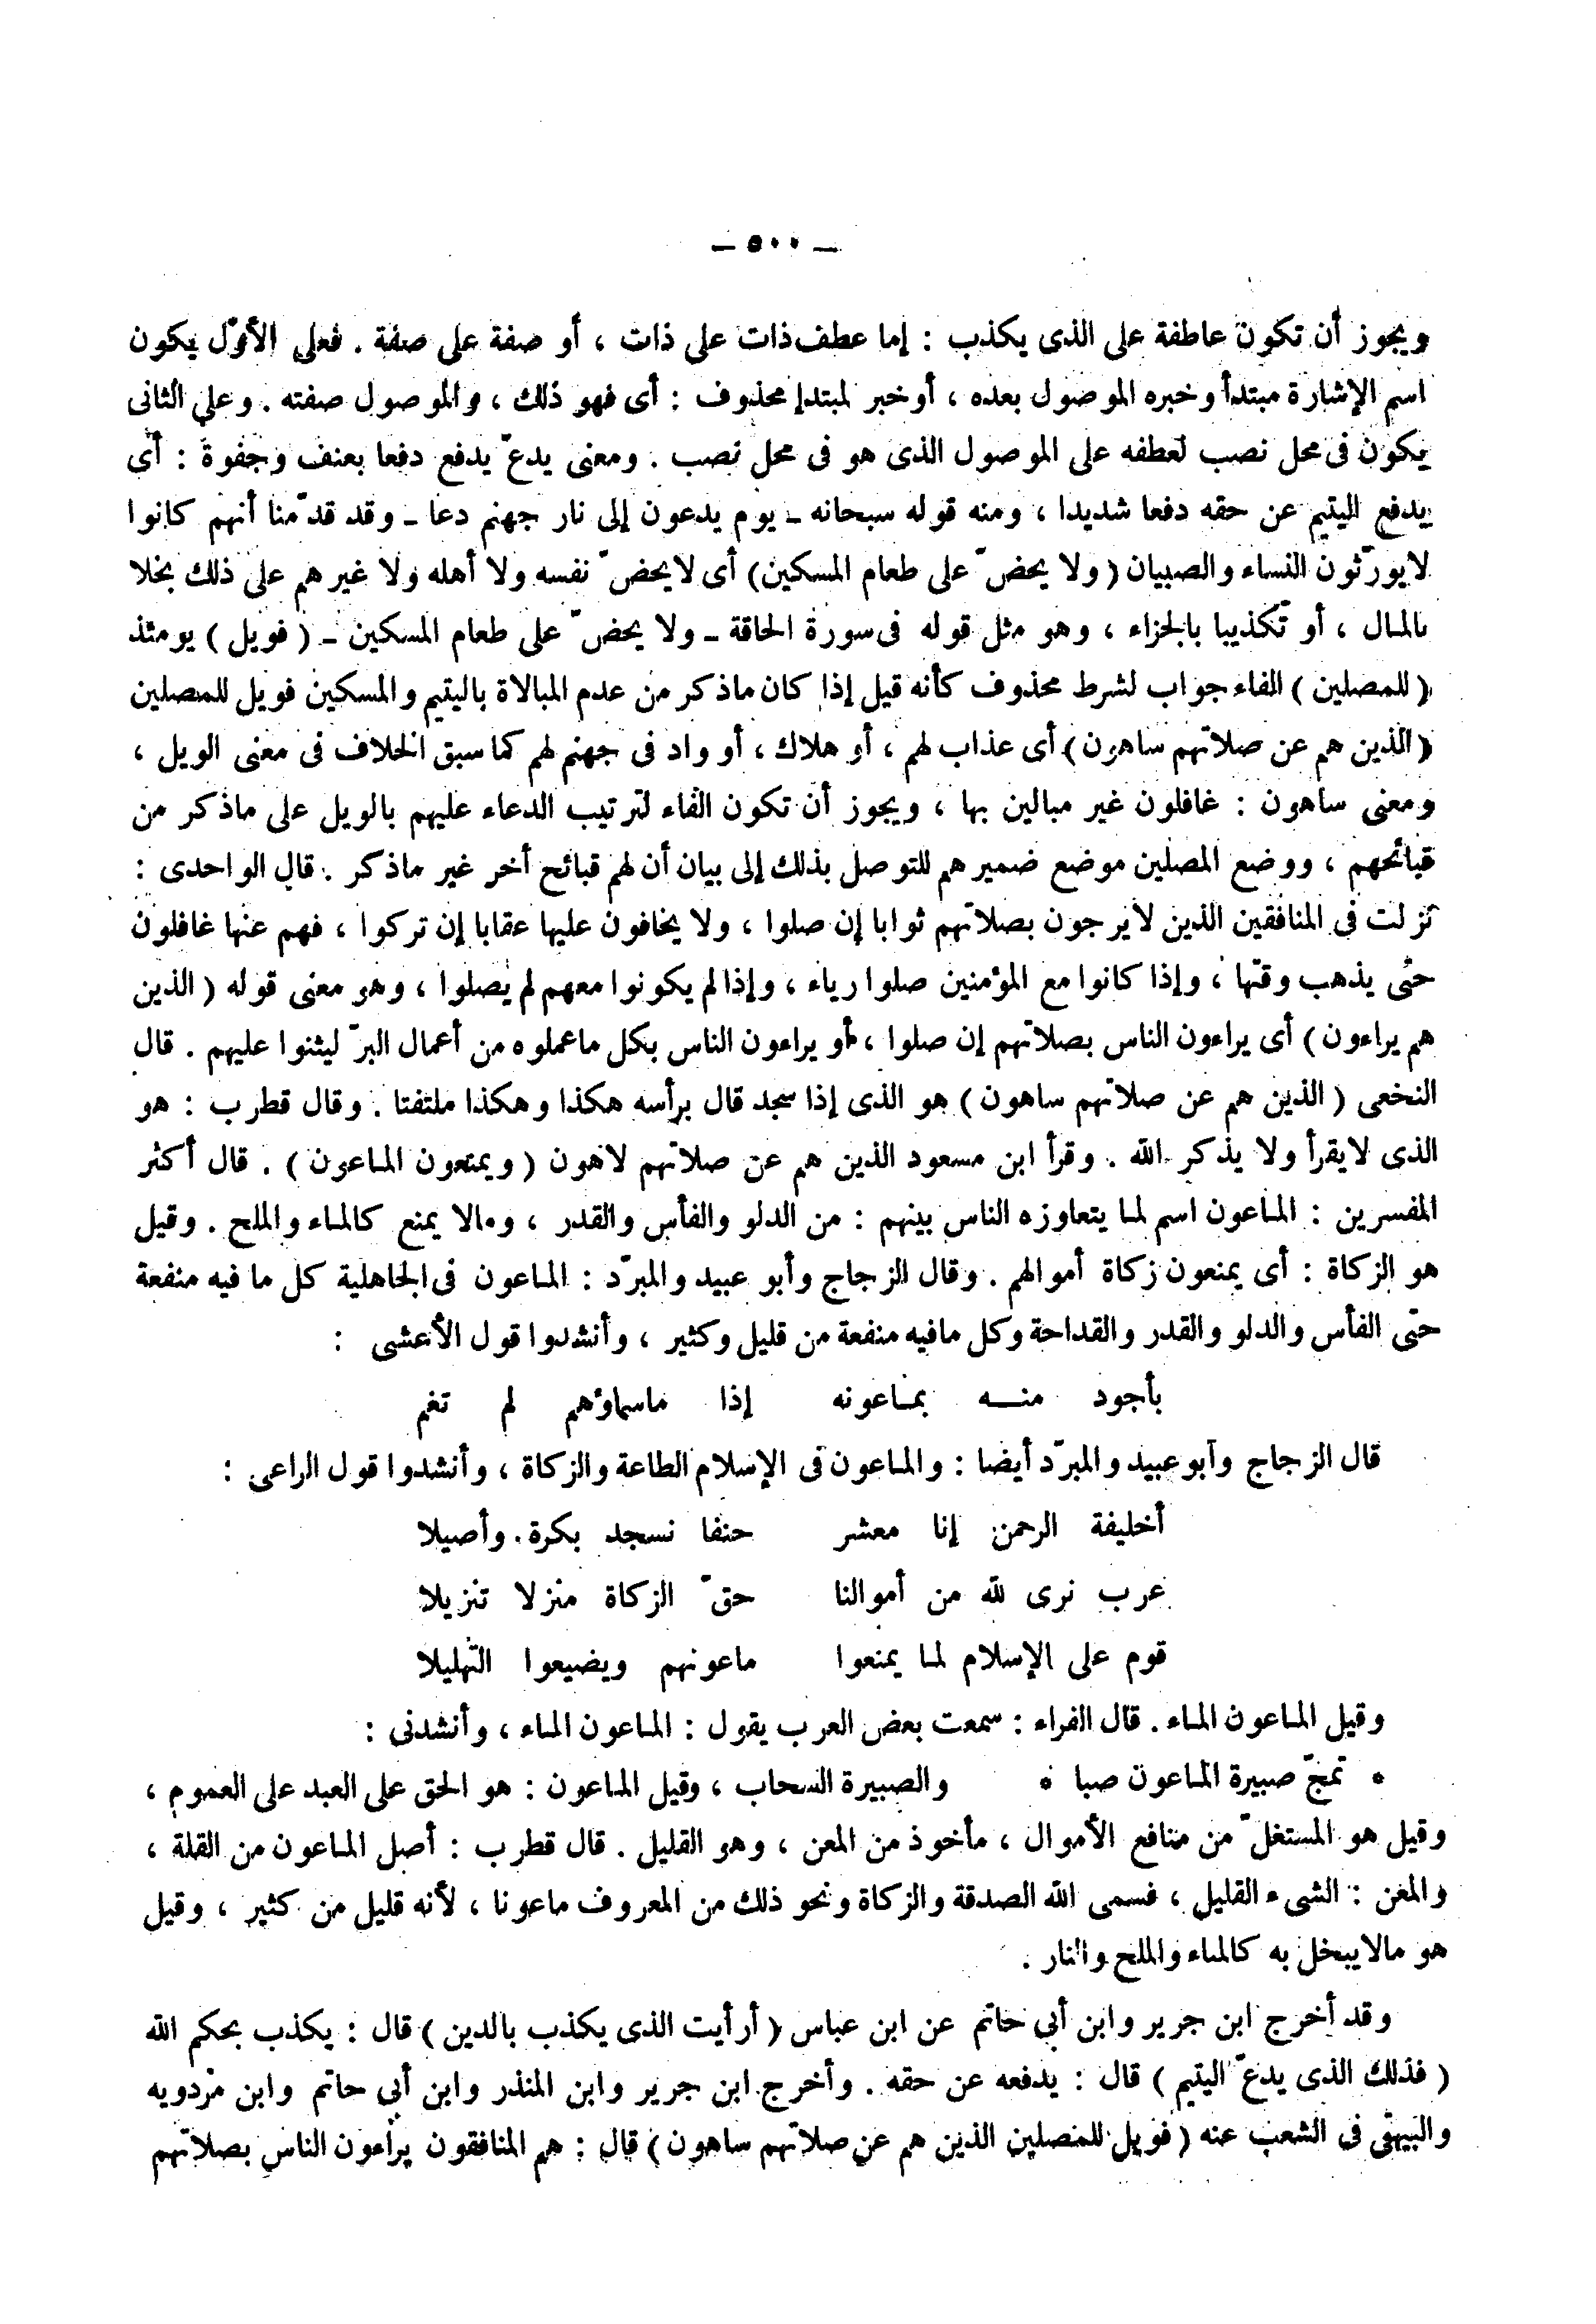 — ٥٠٠ —
ويجوز أن تكون عاطفة على الذى يكذب : إما عطف ذات على ذات ، أو صفة على صفة . فعلى الأوّل يكون
اسم الإشارة مبتدأ وخبره الموصول بعده ، أو خبر لمبتدإ محذوف : أى فهو ذلك ، والموصول صفته . وعلى الثانى
يكون فى محل نصب لعطفه على الموصول الذى هو فى محل نصب . ومعنى يدعّ يدفع دفعا بعنف وجفوة : أى
يدفع اليتيم عن حقه دفعا شديدا ، ومنه قوله سبحانه ـ يوم يدعون إلى نار جهنم دعا ـ وقد قدّمنا أنهم كانوا
لايورّثون النساء والصبيان ( ولا يحضّ على طعام المسكين) أى لايحضّ نفسه ولا أهله ولا غيرهم على ذلك بخلا
بالمال ، أو تكذيبا بالجزاء ، وهو مثل قوله فى سورة الحاقة ـ ولا يحضّ على طعام المسكين ـ ( فويل ) يومئذ
( للمصلين ) الفاء جواب لشرط محذوف كأنه قيل إذا كان ماذكر من عدم المبالاة باليتيم والمسكين فويل للمصلين
( الذين هم عن صلاتهم ساهون) أى عذاب لهم ، أو هلاك ، أو واد فى جهنم لهم كما سبق الخلاف فى معنى الويل ،
ومعنى ساهون : غافلون غير مبالين بها ، ويجوز أن تكون الفاء لترتيب الدعاء عليهم بالويل على ماذكر من
قبائحهم ، ووضع المصلين موضع ضميرهم للتوصل بذلك إلى بيان أن لهم قبائح أخر غير ماذكر . قال الواحدى :
نزلت فى المنافقين الذين لايرجون بصلاتهم ثوابا إن صلوا ، ولا يخافون عليها عقابا إن تركوا ، فهم عنها غافلون
حتى يذهب وقتها ، وإذا كانوا مع المؤمنين صلوا رياء ، وإذا لم يكونوا معهم لم يصلوا ، وهو معنى قوله ( الذين
هم يراءون ) أى يراءون الناس بصلاتهم إن صلوا ، أو يراءون الناس بكل ماعملوه من أعمال البرّ ليثنوا عليهم . قال
النخعى ( الذين هم عن صلاتهم ساهون ) هو الذى إذا سجد قال برأسه هكذا وهكذا ملتفتا . وقال قطرب : هو
الذى لايقرأ ولا يذكر الله . وقرأ ابن مسعود الذين هم عن صلاتهم لاهون ( ويمنعون الماعون ) . قال أكثر
المفسرين : الماعون اسم لما يتعاوزه الناس بينهم : من الدلو والفأس والقدر ، ومالا يمنع كالماء والملح . وقيل
هو الزكاة : أى يمنعون زكاة أموالهم . وقال الزجاج وأبو عبيد والمبرّد : الماعون فى الجاهلية كل ما فيه منفعة
حتى الفأس والدلو والقدر والقداحة وكل مافيه منفعة من قليل وكثير ، وأنشدوا قول الأعشى :
بأجود منـه بمـاعونه إذا ماسماؤهم لم تغم
قال الزجاج وأبو عبيد والمبرّد أيضا : والماعون فى الإسلام الطاعة والزكاة ، وأنشدوا قول الراعى :
أخليفة الرحمن إنا معشر حنفا نسجد بكرة وأصيلا
عرب نرى لله من أموالنا حقّ الزكاة منزلا تنزيلا
قوم على الإسلام لما يمنعوا ماعونهم ويضيعوا التهليلا
وقيل الماعون الماء . قال الفراء : سمعت بعض العرب يقول : الماعون الماء ، وأنشدنى :
* تمجّ صبيرة الماعون صبا * والصبيرة السحاب ، وقيل الماعون : هو الحق على العبد على العموم ،
وقيل هو المستغلّ من منافع الأموال ، مأخوذ من المعن ، وهو القليل . قال قطرب : أصل الماعون من القلة ،
والمعن : الشىء القليل ، فسمى الله الصدقة والزكاة ونحو ذلك من المعروف ماعونا ، لأنه قليل من كثير ، وقيل
هو مالايبخل به كالماء والملح والنار .
وقد أخرج ابن جرير وابن أبى حاتم عن ابن عباس ( أرأيت الذى يكذب بالدين ) قال : يكذب بحكم الله
( فذلك الذى يدعّ اليتيم ) قال : يدفعه عن حقه . وأخرج ابن جرير وابن المنذر وابن أبى حاتم وابن مردويه
والبيهقى فى الشعب عنه ( فويل للمصلين الذين هم عن صلاتهم ساهون ) قال : هم المنافقون يراءون الناس بصلاتهم